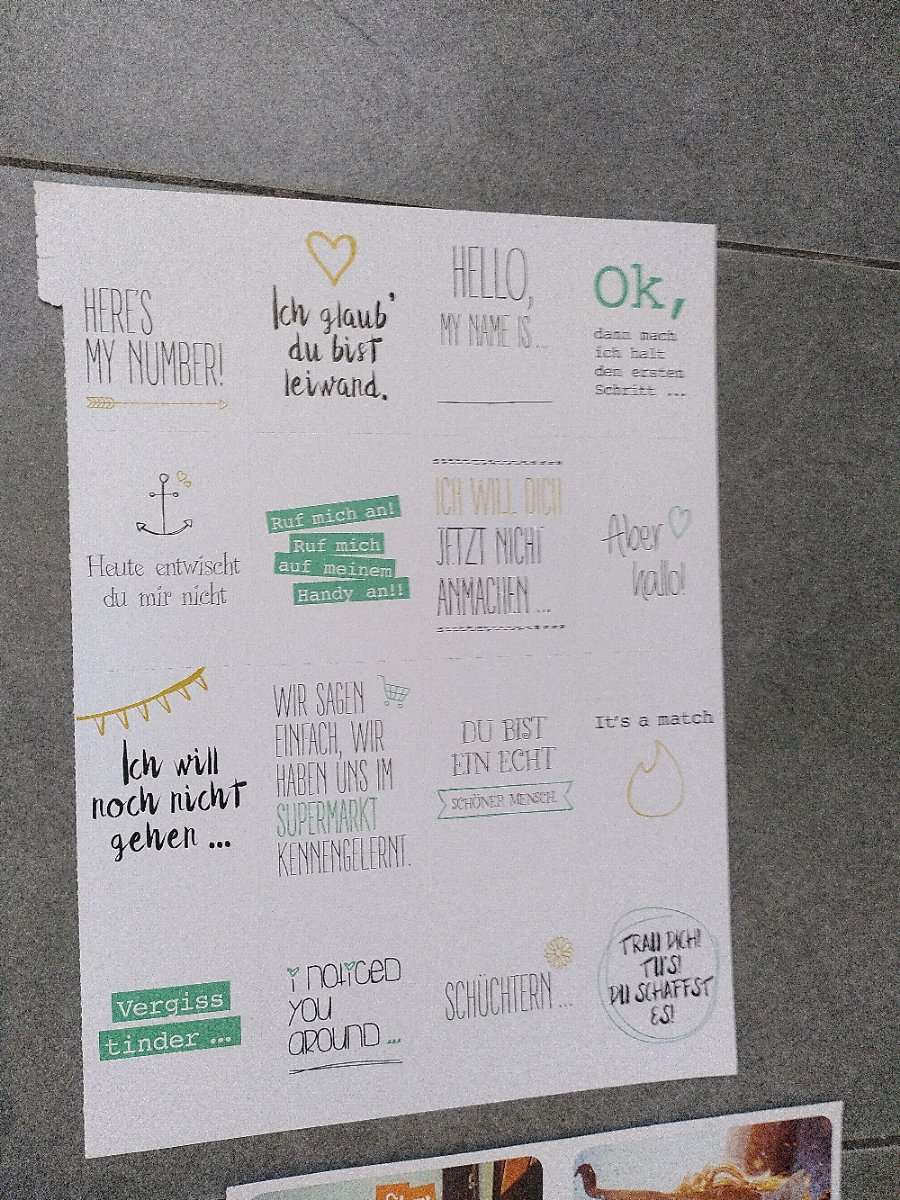 HERE'S
MY NUMBER!
Ich glaub'
du bist
leiwand.
HELLO,
MY NAME IS...
Ok,
dann mach
ich halt
den ersten
Schritt ...
Heute entwischt
du mir nicht
Ruf mich an!
Ruf mich
auf meinem
Handy an!!
ICH WILL DICH
JETZT NICHT
ANMACHEN ...
Aber
hallo!
Ich will
noch nicht
gehen ...
WIR SAGEN
EINFACH, WIR
HABEN UNS IM
SUPERMARKT
KENNENGELERNT.
DU BIST
EIN ECHT
SCHÖNER MENSCH.
It's a match
Vergiss
tinder ...
i noticed
you
around ...
SCHÜCHTERN ...
TRAU DICH!
TU'S!
DU SCHAFFST
ES!